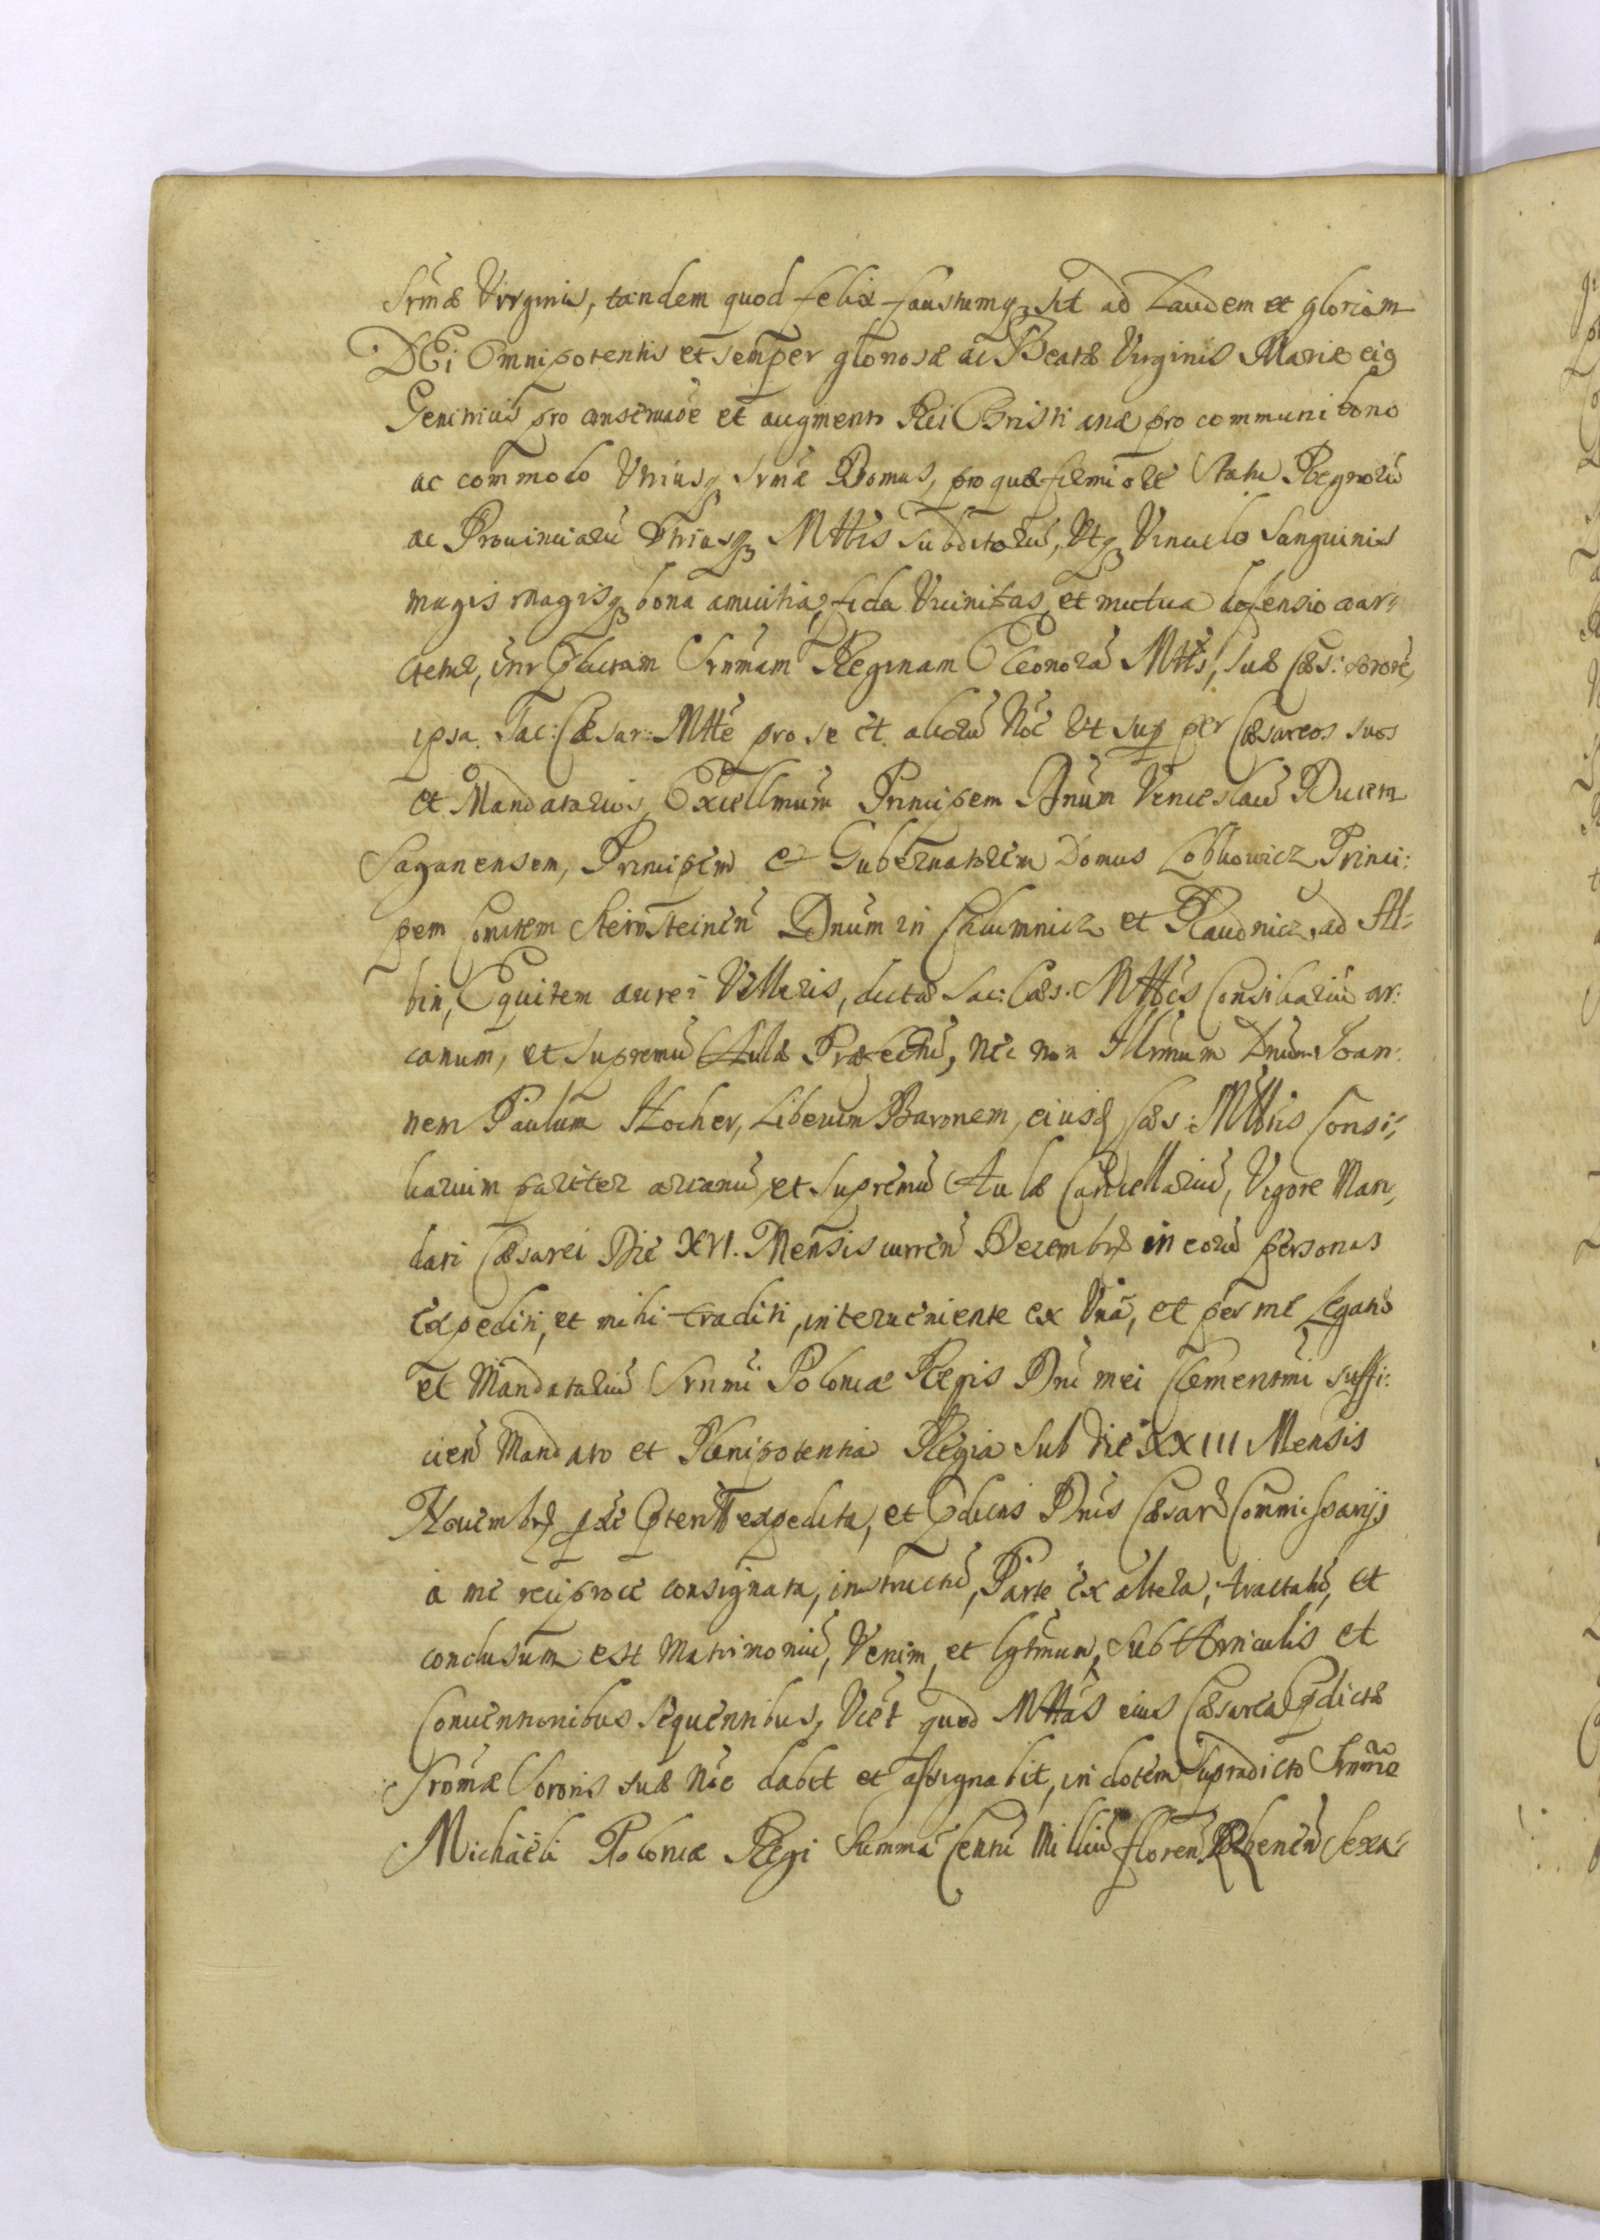 Srmæ Virginis, tandem quod felix faustumq₃ sit ad Laudem et gloriam
DEi Omnipotentis et semper gloriosæ ac Beatæ Virginis Mariæ eiꝰ
Genitricis pro conservaõe et augmento Rei Christianæ pro communi bono
ac commodo Utriusq₃ Srmæ Domus, pro quæ firmiore Statu Regnorũ
ac Provinciarũ Utriusq₃ Mttis Subditorũ, Utq₃ Vinculo Sanguinis
magis magisq₃ bona amicitia, fida Vicinitas, et mutua defensio coar„
ctetur, intr Sermam Reginam Eleonorã Mttis, Suæ Cæs: sororẽ,
ipsa Sac: Cæsar: Mtte pro se et alicũ Nõe Ut sup per Cæsareos suos
et Mandatarios, Excellmum Principem Dnum Venceslaũ Ducem
Saganensem, Principem & Gubernatorem Domus Lobkowicz, Princi:
pem Comitem Sternsteinẽn Dnum in Chlumnicz et Raudnicz, ad Al„
bin, Equitem aurei Velleris, dictæ Sac: Cæs. Mttis Consiliariũ ar:
canum, et Supremũ Aulæ Præfectũ, Nec non Illrmum Dnum Joan:
nem Paulum Hocher, Liberum Baronem, eiusd Cæs: Mttis Consi„
liarium pariter arcanũ, et Supremũ Aulæ Cancellariũ, Vigore Man„
dati Cæsarei Die XVI. Mensis curren̄ Decembrs in eorũ personas
expediti, et mihi traditi, interveniente ex Unã, et per me Legatũ
et Mandatariũ Srnmi Poloniæ Regis Dni mei Clementmi suffi:
cien̄ Mandato et Plenipotentia Regia Sub die XXIII Mensis
Novembrs expedita, et Dnis Cæsar Commissarijs
à me reciproce consignata, instructũ, Parte ex altera, tractatũ, et
conclusum est Matrimoniũ, Verum, et lgtmum, Sub Articulis et
Conventionibus sequentibus, Vcet quod Mttas eius Cæsarea dictæ
Srmæ Sororis suæ Nõe dabit et assignabit, in dotem Supradicto Srmo
Michaëli Poloniæ Regi Summã Centũ Milliũ floren̄ Rhenen̄ Sexa„